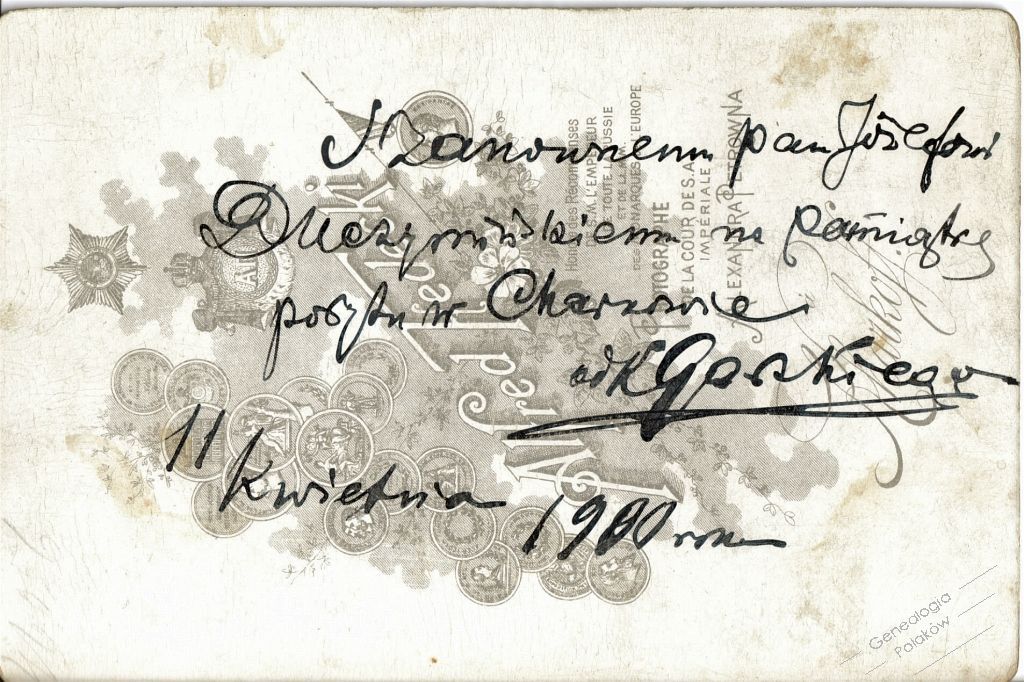 Szanownemu panu Józefowi
na pamiątkę
pobytu w Charkowie
od K Gorskiego
11 Kwietnia 1900 roku
Alfred Fedecki
Hautes Récompenses
S.M. L'EMPEREUR
DE TOUTE LA RUSSIE
ET DE LA
DES MONARQUES D'EUROPE
PHOTOGRAPHE
DE LA COUR DE S.A.
IMPÉRIALE
ALEXANDRA PETROWNA
à Charkoff.
Genealogia
Polaków